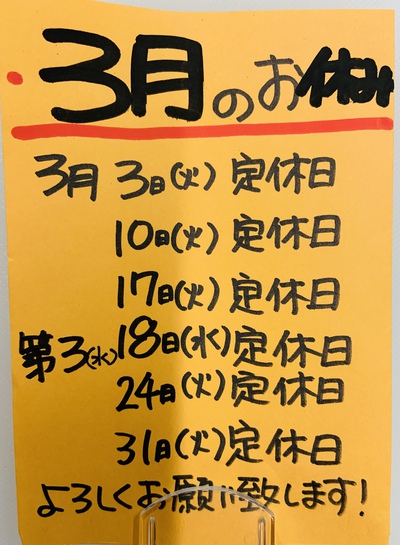 3月のお休み
3月 3日(火)定休日
10日(火)定休日
17日(火)定休日
第3(水)18日(水)定休日
24日(火)定休日
31日(火)定休日
よろしくお願い致します!